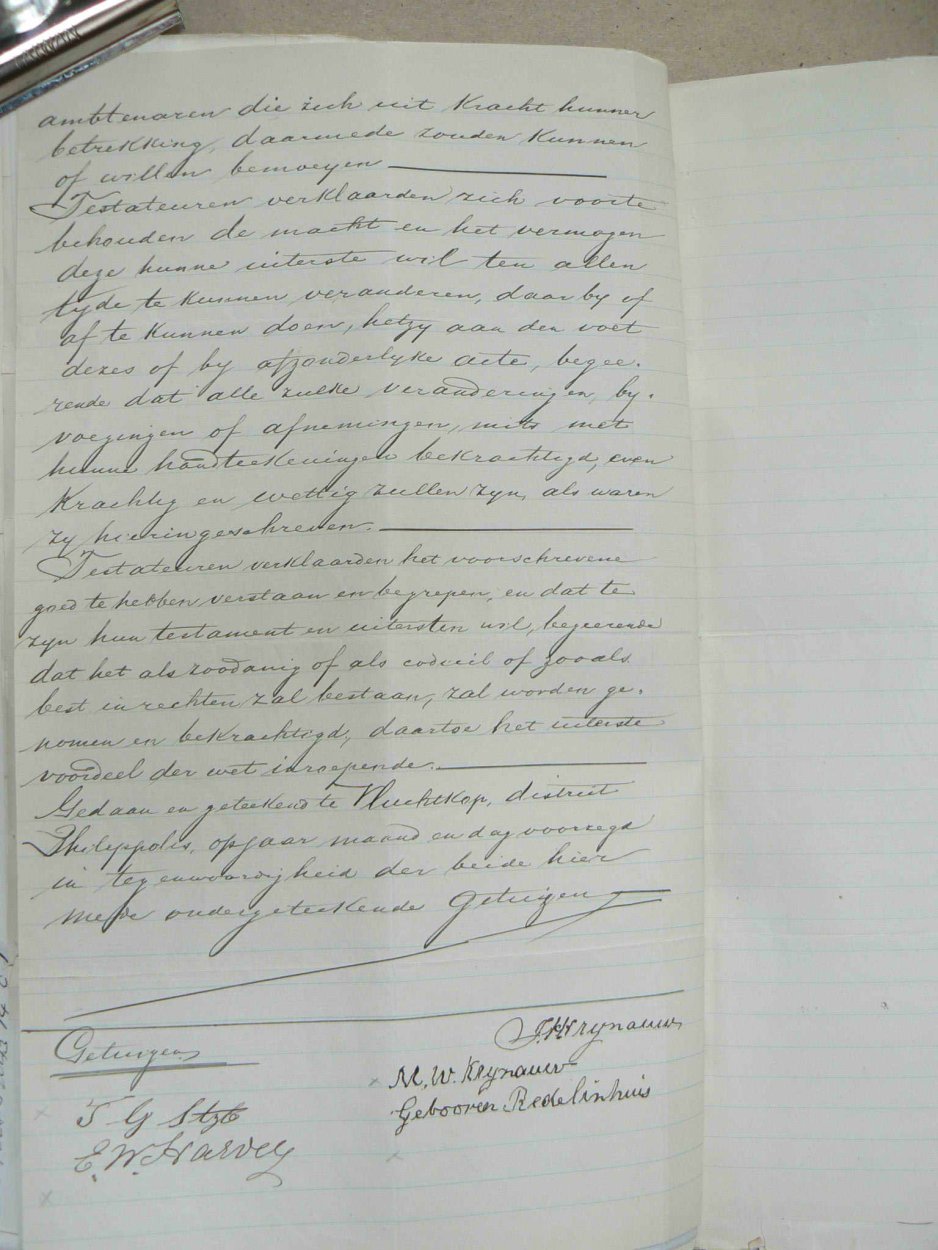 ambtenaren die zich uit Kracht hunner
betrekking, daarmede zouden Kunnen
of willen bemoeyen
Testateuren verklaarden zich voorte
behouden de macht en het vermogen
deze hunne uiterste wil ten allen
tyde te Kunnen veranderen, daar by of
af te Kunnen doen, hetzy aan den voet
dezes of by afzonderlyke acte, begee.
rende dat alle zulke veranderingen, by.
voegingen of afnemingen, mits met
hunne handteekeningen bekrachtigd, even
Krachtig en wettig zullen zyn, als waren
zy hieringeschreven.
Testateuren verklaarden het voorschrevene
goed te hebben verstaan en begrepen, en dat te
zyn hun testament en uitersten wil, begeerende
dat het als zoodanig of als codicil of zooals
best in rechten zal bestaan, zal worden ge.
nomen en bekrachtigd, daartoe het uiterste
voordeel der wet inroepende.
Gedaan en geteekend te Vluchtkop, district
Philippolis, op jaar maand en dag voorzegd
in tegenwoordigheid der beide hier
mede ondergeteekende Getuigen
Getuigen
J.H Krynauw
M. W. Krynauw
Gebooren Redelinhuis
T G
E. W. Harvey